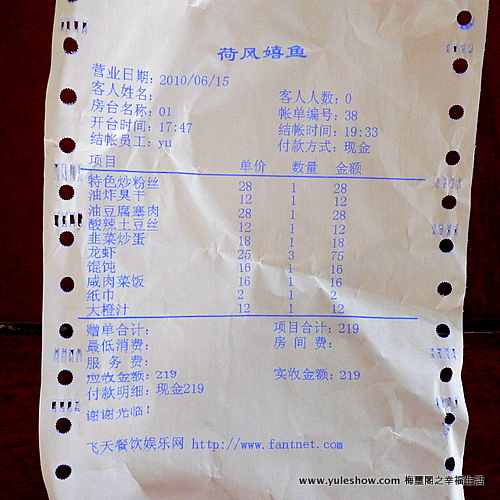 荷风嬉鱼
营业日期: 2010/06/15
客人姓名: 客人人数: 0
房台名称: 01 帐单编号: 38
开台时间: 17:47 结帐时间: 19:33
结帐员工: yu 付款方式: 现金
项目 单价 数量 金额
特色炒粉丝 28 1 28
油炸臭干 12 1 12
油豆腐塞肉 28 1 28
酸辣土豆丝 12 1 12
韭菜炒蛋 18 1 18
龙虾 25 3 75
馄饨 16 1 16
咸肉菜饭 16 1 16
纸巾 2 1 2
大橙汁 12 1 12
赠单合计: 项目合计: 219
最低消费: 房间费:
服务费:
应收金额: 219 实收金额: 219
付款明细: 现金219
谢谢光临!
飞天餐饮娱乐网 http://www.fantnet.com
www.yuleshow.com 梅璽閣之幸福生活